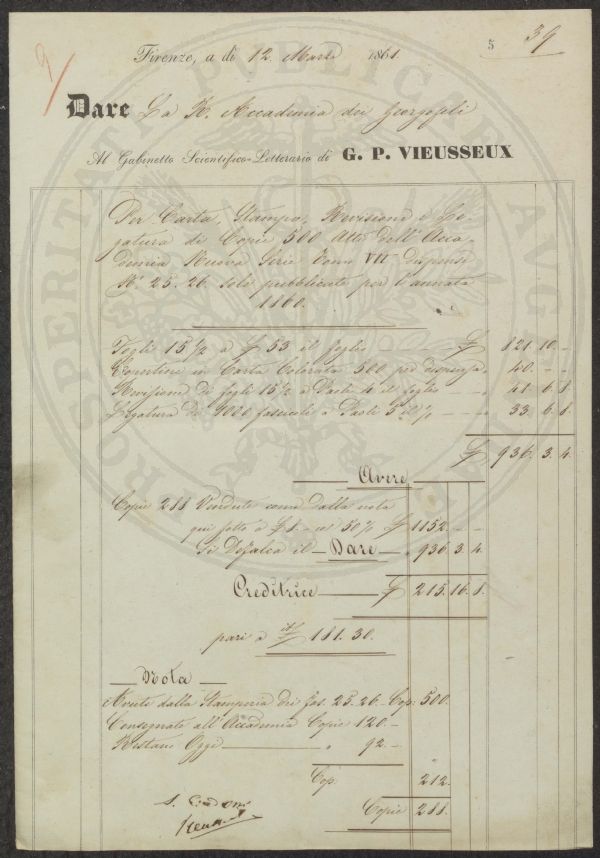 5 39
9/
Firenze, a di 12. Marzo 1861.
Dare La R. Accademia dei Georgofili
Al Gabinetto Scientifico-Letterario di G. P. VIEUSSEUX
Per Carta, Stampa, Revisione e Le-
gatura di Copie 500 Atti dell'Acca-
demia Nuova Serie Tomo VII Dispense
N.i 25. 26. sole pubblicate per l'annata
1860.
Fogli 15 1/2 a £ 53 il foglio £ 821. 10. -
Copertine in Carta Colorata 500 per dispensa. 40. - -
Revisione di fogli 15 1/2 a Paoli 4 il foglio - - 41. 6. 8.
Legatura di 1000 fascicoli a Paoli 5 il % - - 33. 6. 8.
£ 936. 3. 4.
Avere
Copie 288 Vendute come dalla nota
qui sotto a £ 8. - col 50% £ 1152. - -
Si Defalca il Dare 936. 3. 4.
Creditrice £ 215. 16. 8.
pari a it.£ 181. 30.
Nota
Avute dalla Stamperia dei fas. 25. 26. Cop: 500.
Consegnate all'Accademia Copie 120 -
Restano Oggi " 92. -
Cop. 212.
Copie 288.
PROSPERITATI PUBLICAE AUG